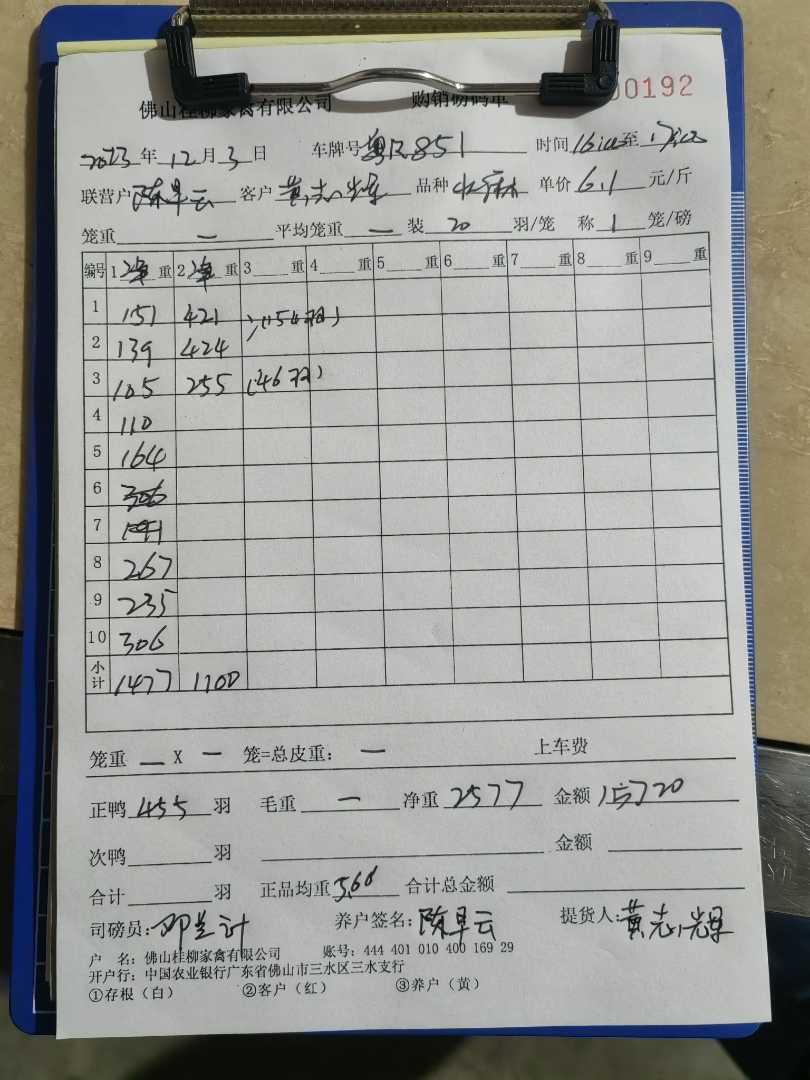 佛山桂柳家禽有限公司 购销磅码单 00192
2023年12月3日 车牌号粤R851 时间16:00至17:00
联营户陈早云 客户黄志辉 品种 单价6.1元/斤
笼重一 平均笼重一 装20羽/笼 称1笼/磅
编号 1净重 2净重 3重 4重 5重 6重 7重 8重 9重
1 151 421 (154羽)
2 139 424
3 105 255 (46羽)
4 110
5 164
6 306
7
8 267
9 235
10 306
小计 1477 1100
笼重一X一笼=总皮重：一 上车费
正鸭455羽 毛重一 净重2577 金额15720
次鸭羽 金额
合计羽 正品均重5.66 合计总金额
司磅员： 养户签名：陈早云 提货人：黄志辉
户 名：佛山桂柳家禽有限公司 账号：444 401 010 400 169 29
开户行：中国农业银行广东省佛山市三水区三水支行
①存根（白） ②客户（红） ③养户（黄）